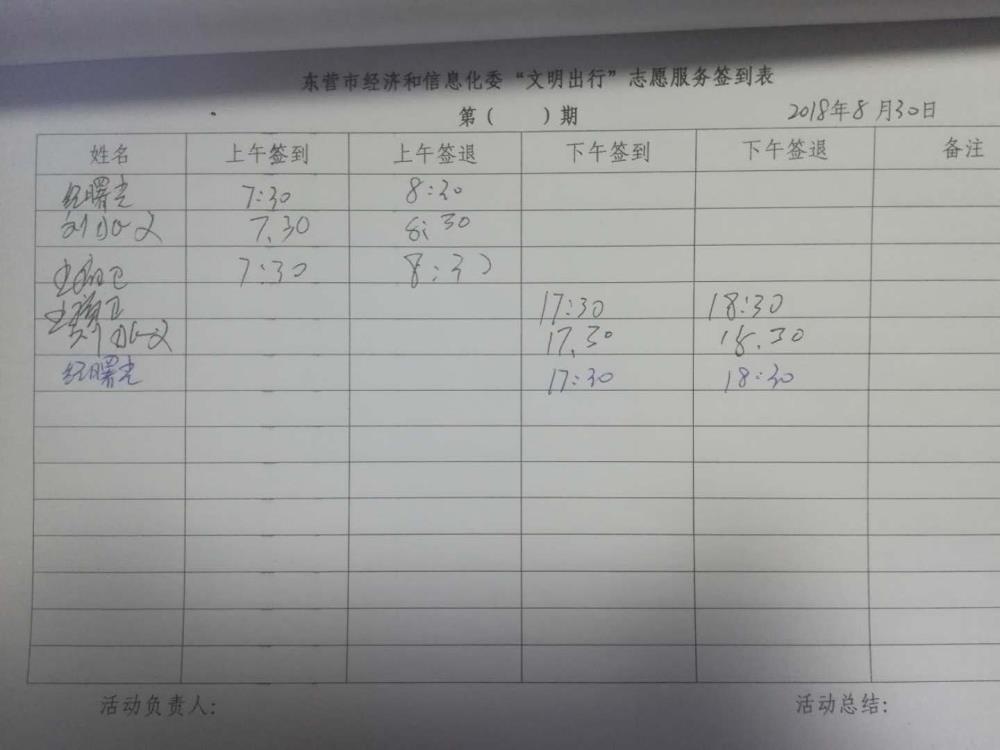 东营市经济和信息化委“文明出行”志愿服务签到表
第（ ）期 2018年8月30日
姓名 上午签到 上午签退 下午签到 下午签退 备注
经曙光 7:30 8:30
7.30 8:30
7:30 8:30
17:30 18:30
17.30 18.30
经曙光 17:30 18:30
活动负责人: 活动总结: